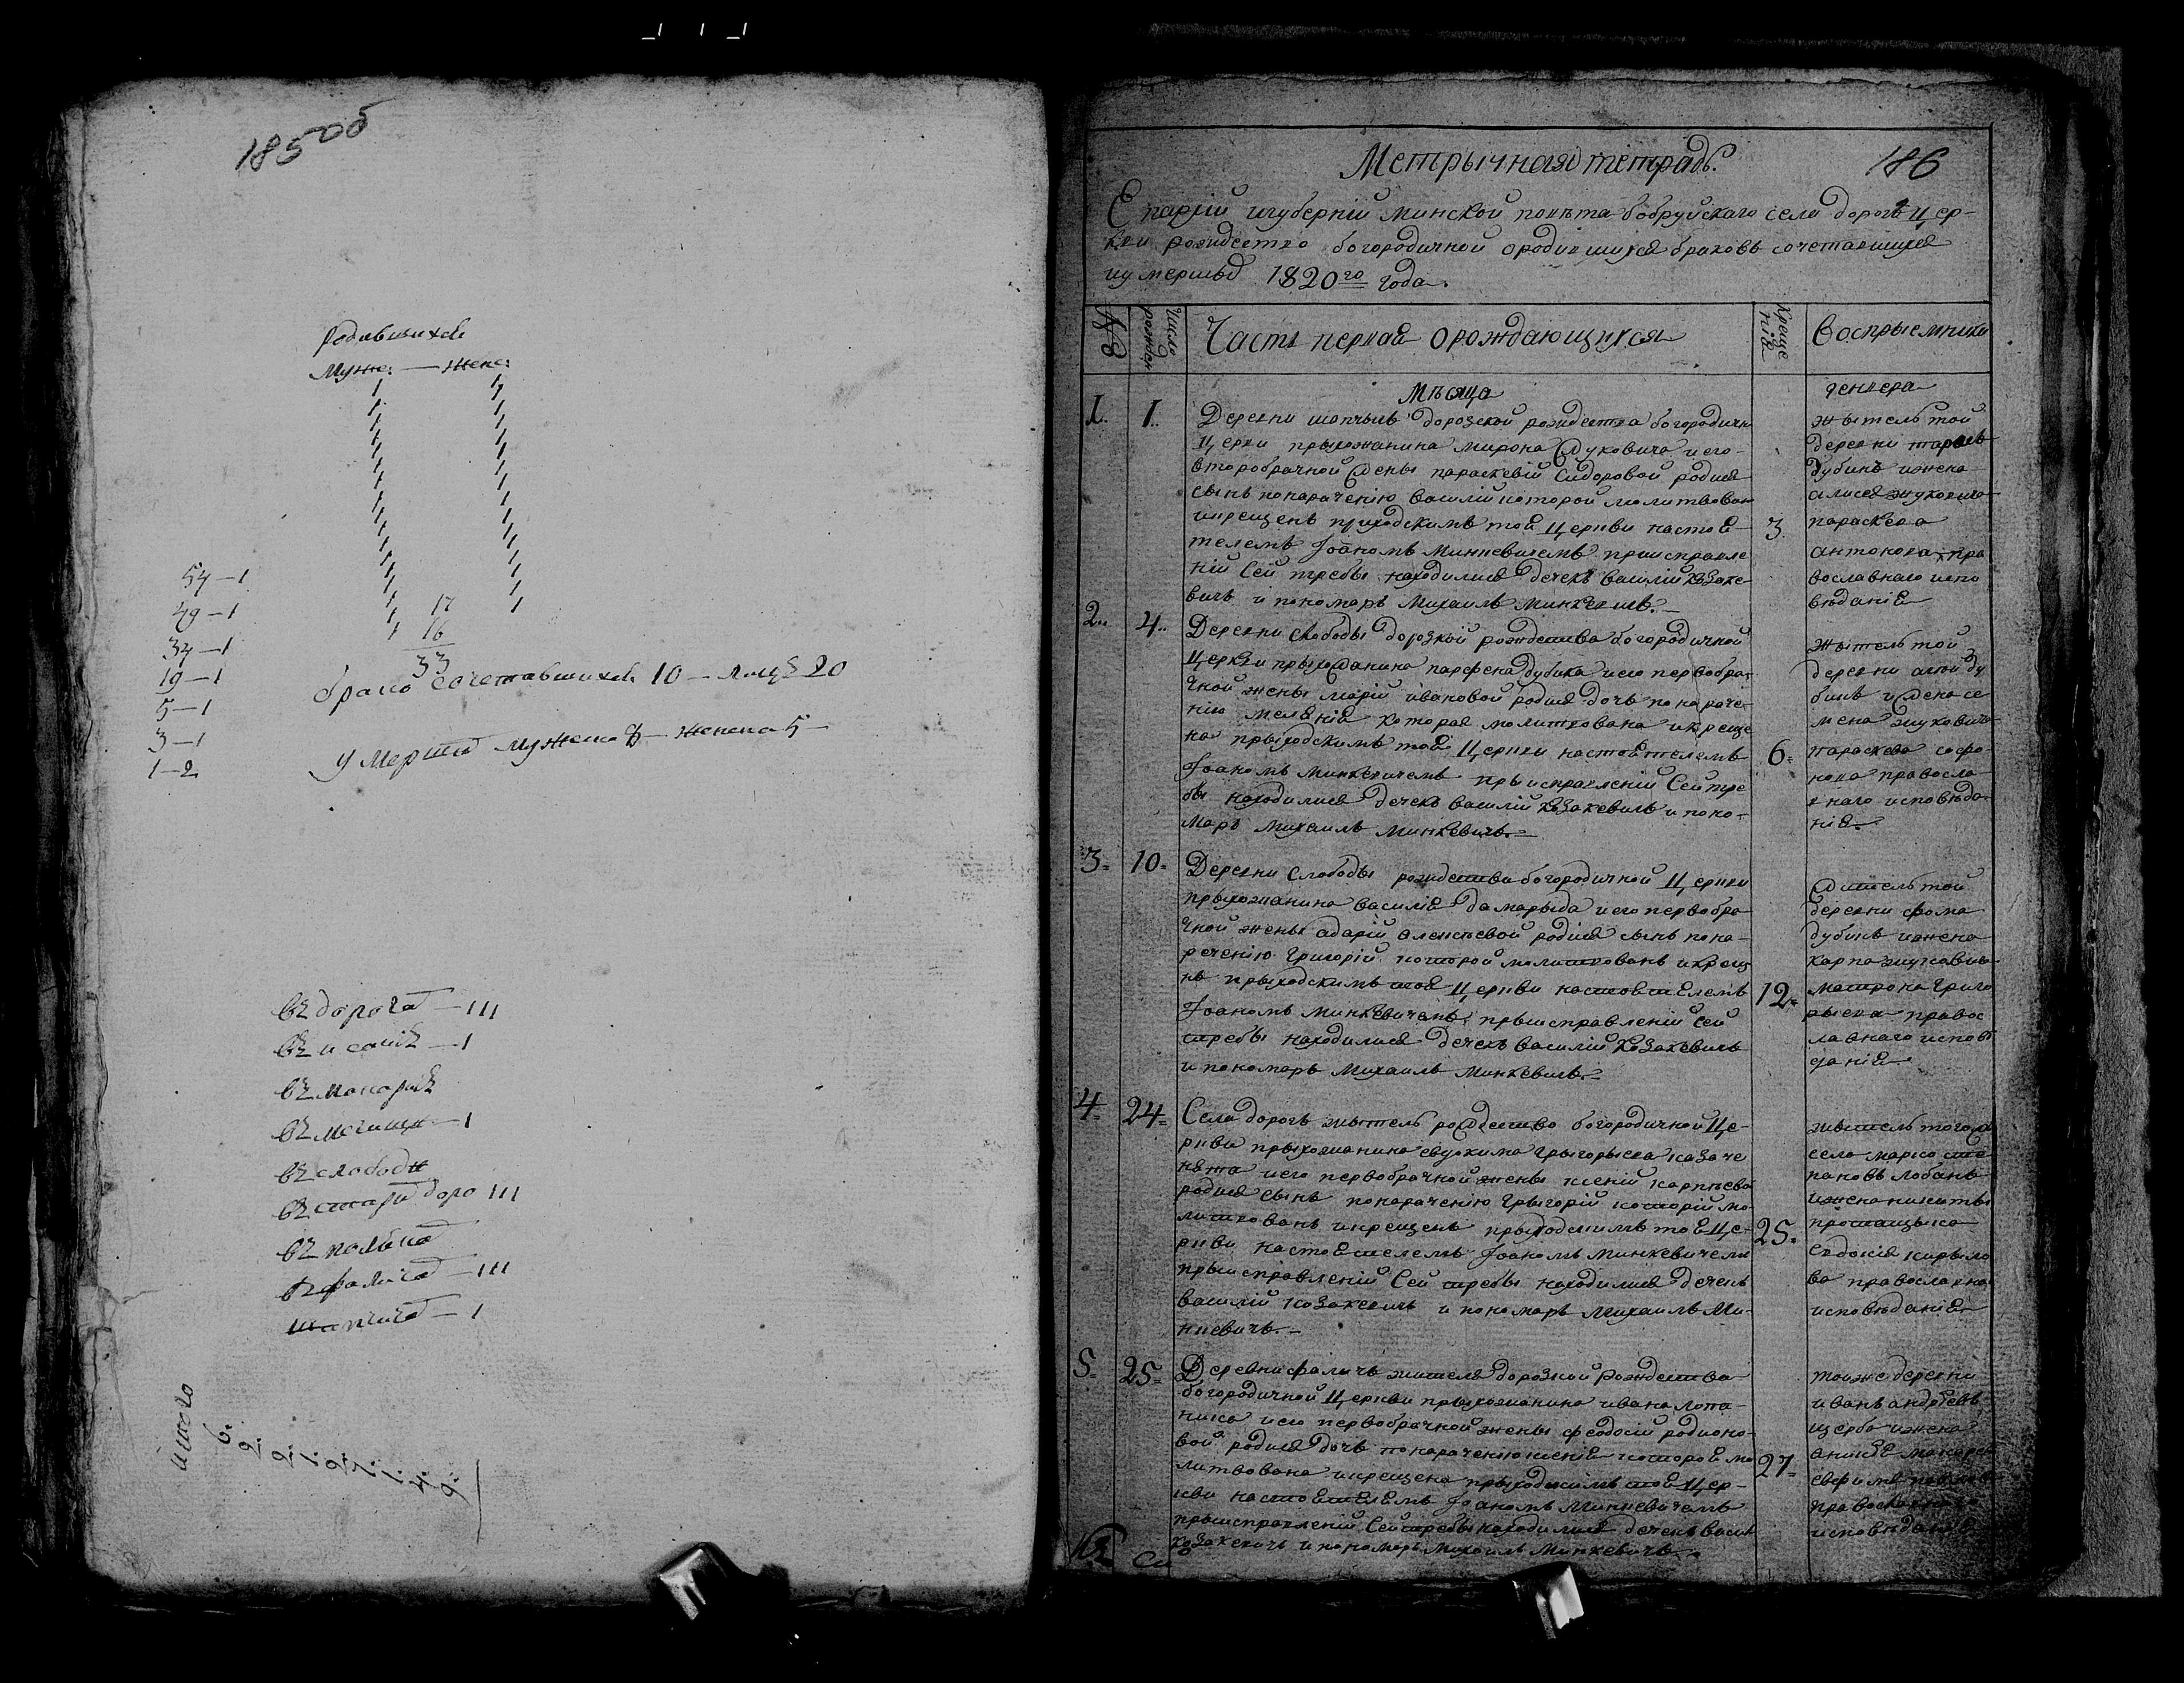 185об
Родившихся
Муже: — Жене:
17
16
33
54—1
49—1
34—1
19—1
5—1
3—1
1—2
брако сочетавшихся 10 — лицъ 20
Умерших мужеска 8 — женска 5 —
въ дорога — III
въ — I
въ
въ — I
въ слободѣ
въ стары доро III
въ
въ фалича — III
— I
186
Метрычная тетрадь.
Епархіи игуберніи Минской повѣта бобруйскаго села дорогъ Цер-
кви рождество богородичной ородившихся браковъ сочетавшихся
иумершыхъ 1820го года.
№
Число рожден
Часть первая орождающихся
Креще нія
Воспрыемники
Мѣсяца
генвера
1. 1.
Деревни шапчыцъ дорозской рождества богородичн
Церкви прыхожанина мирона Жуковича иего
второбрачной жены параскевіи Сидоровой родися
сынъ понаречению василій которой молитвован
икрещенъ приходскимъ той Церкви настоя-
телемъ Іоаномъ Минкевичемъ приисправле
ніи Сей требы находилися дечекъ василій Козаке-
вичъ и пономаръ Михаилъ Минкевичъ.
3
жытель той
деревни
дубикъ ижена
параскева
антонова пра
вославнаго испо
веданія
2. 4.
Деревни слободы дорозкой рождества богородичной
Церкви прыхожанина парфена дубика иего первобра-
чной жены маріи ивановой родися дочь понарече-
нію меланія которая молитвована икреще
на прыходскимъ той Церкви настоятелемъ
Іоаномъ Минкевичемъ прыисправленіи Сей тре
бы находилися дечекъ василій Козакевичъ и поно-
маръ Михаилъ Минкевичъ.
6.
жытель той
деревни ду
бикъ и жена се
мена жуковича
параскева софо-
нова правосла
внаго исповѣда
нія.
3. 10.
Деревни слободы рождества богородичной Церкви
прыхожанина василія дамарыда иего первобра
чной жены адаріи алексѣевой родися сынъ пона-
речению Григорій которой молитвованъ икреще
нъ прыходскимъ тоя Церкви настоятелемъ
Іоаномъ Минкевичемъ прыисправленіи Сей
требы находилися дечекъ василій Козакевичъ
и пономаръ Михаилъ Минкевичъ.
12.
Житель той
деревни фома
дубикъ ижена
карпа
матрона Григо
рыева правос
лавнаго исповѣ
данія
4. 24.
Села дорогъ жытель рождество богородичной Це-
ркви прыхожанина евдокима Грыгорьева казаче
иего первобрачной жены ксеніи карпѣева
родися сынъ понарачению Грыгорій которій мо
литвованъ икрещенъ прыходскимъ тоя Це-
ркви настоятелемъ Іоаномъ Минкевичемъ
прыисправленіи Сей требы находилися дечекъ
василій Козакевичъ и пономаръ Михаилъ Ми-
нкевичъ.
25.
жытель тогожъ
села марко сте
пановъ лобанъ
ижена никиты
евдокія кирыло
ва православна
исповѣданія
5. 25.
Деревни фаличъ жителя дорозкой Рождества
богородичной Церкви прыхожанина ивана лопа-
ника иего первобрачной жены феодосіи родионо-
вой родися дочь понарачению ксенія которой мо
литвована икрещена прыходскимъ тоя Цер-
кви настоятелемъ Іоаномъ Минкевичемъ
прыисправленіи Сей требы находилися дечекъ васил
Козакевичъ и пономаръ Михаилъ Минкевичъ.
27.
тоиже деревни
иванъ андрѣевъ
щерба ижена
исповѣданія